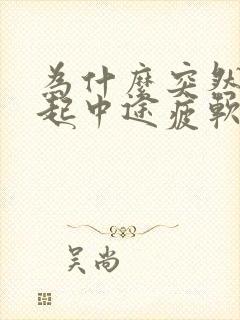 為什麼突然
起中途疲軟
吳尚